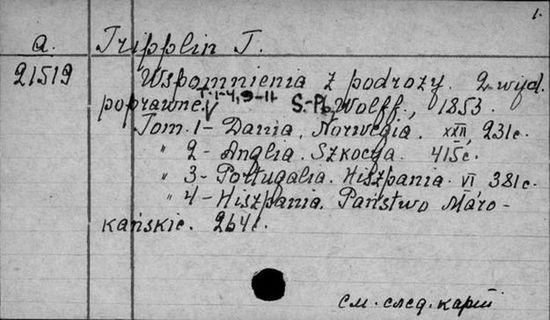 1.
a. Tripplin T.
21519 Wspomnienia z podrozy. 2 wyd.
poprawne. T. 1-4, 9-11 S.-Pb, Wolff., 1853.
Tom. 1 - Dania, Norwegia. XXII, 231 c.
" 2 - Anglia. Szkocya. 415 c.
" 3 - Portugalia. Hiszpania. VI, 381 c.
" 4 - Hiszpania. Państwo Maro-
kańskie. 264 c.
см. след. карт